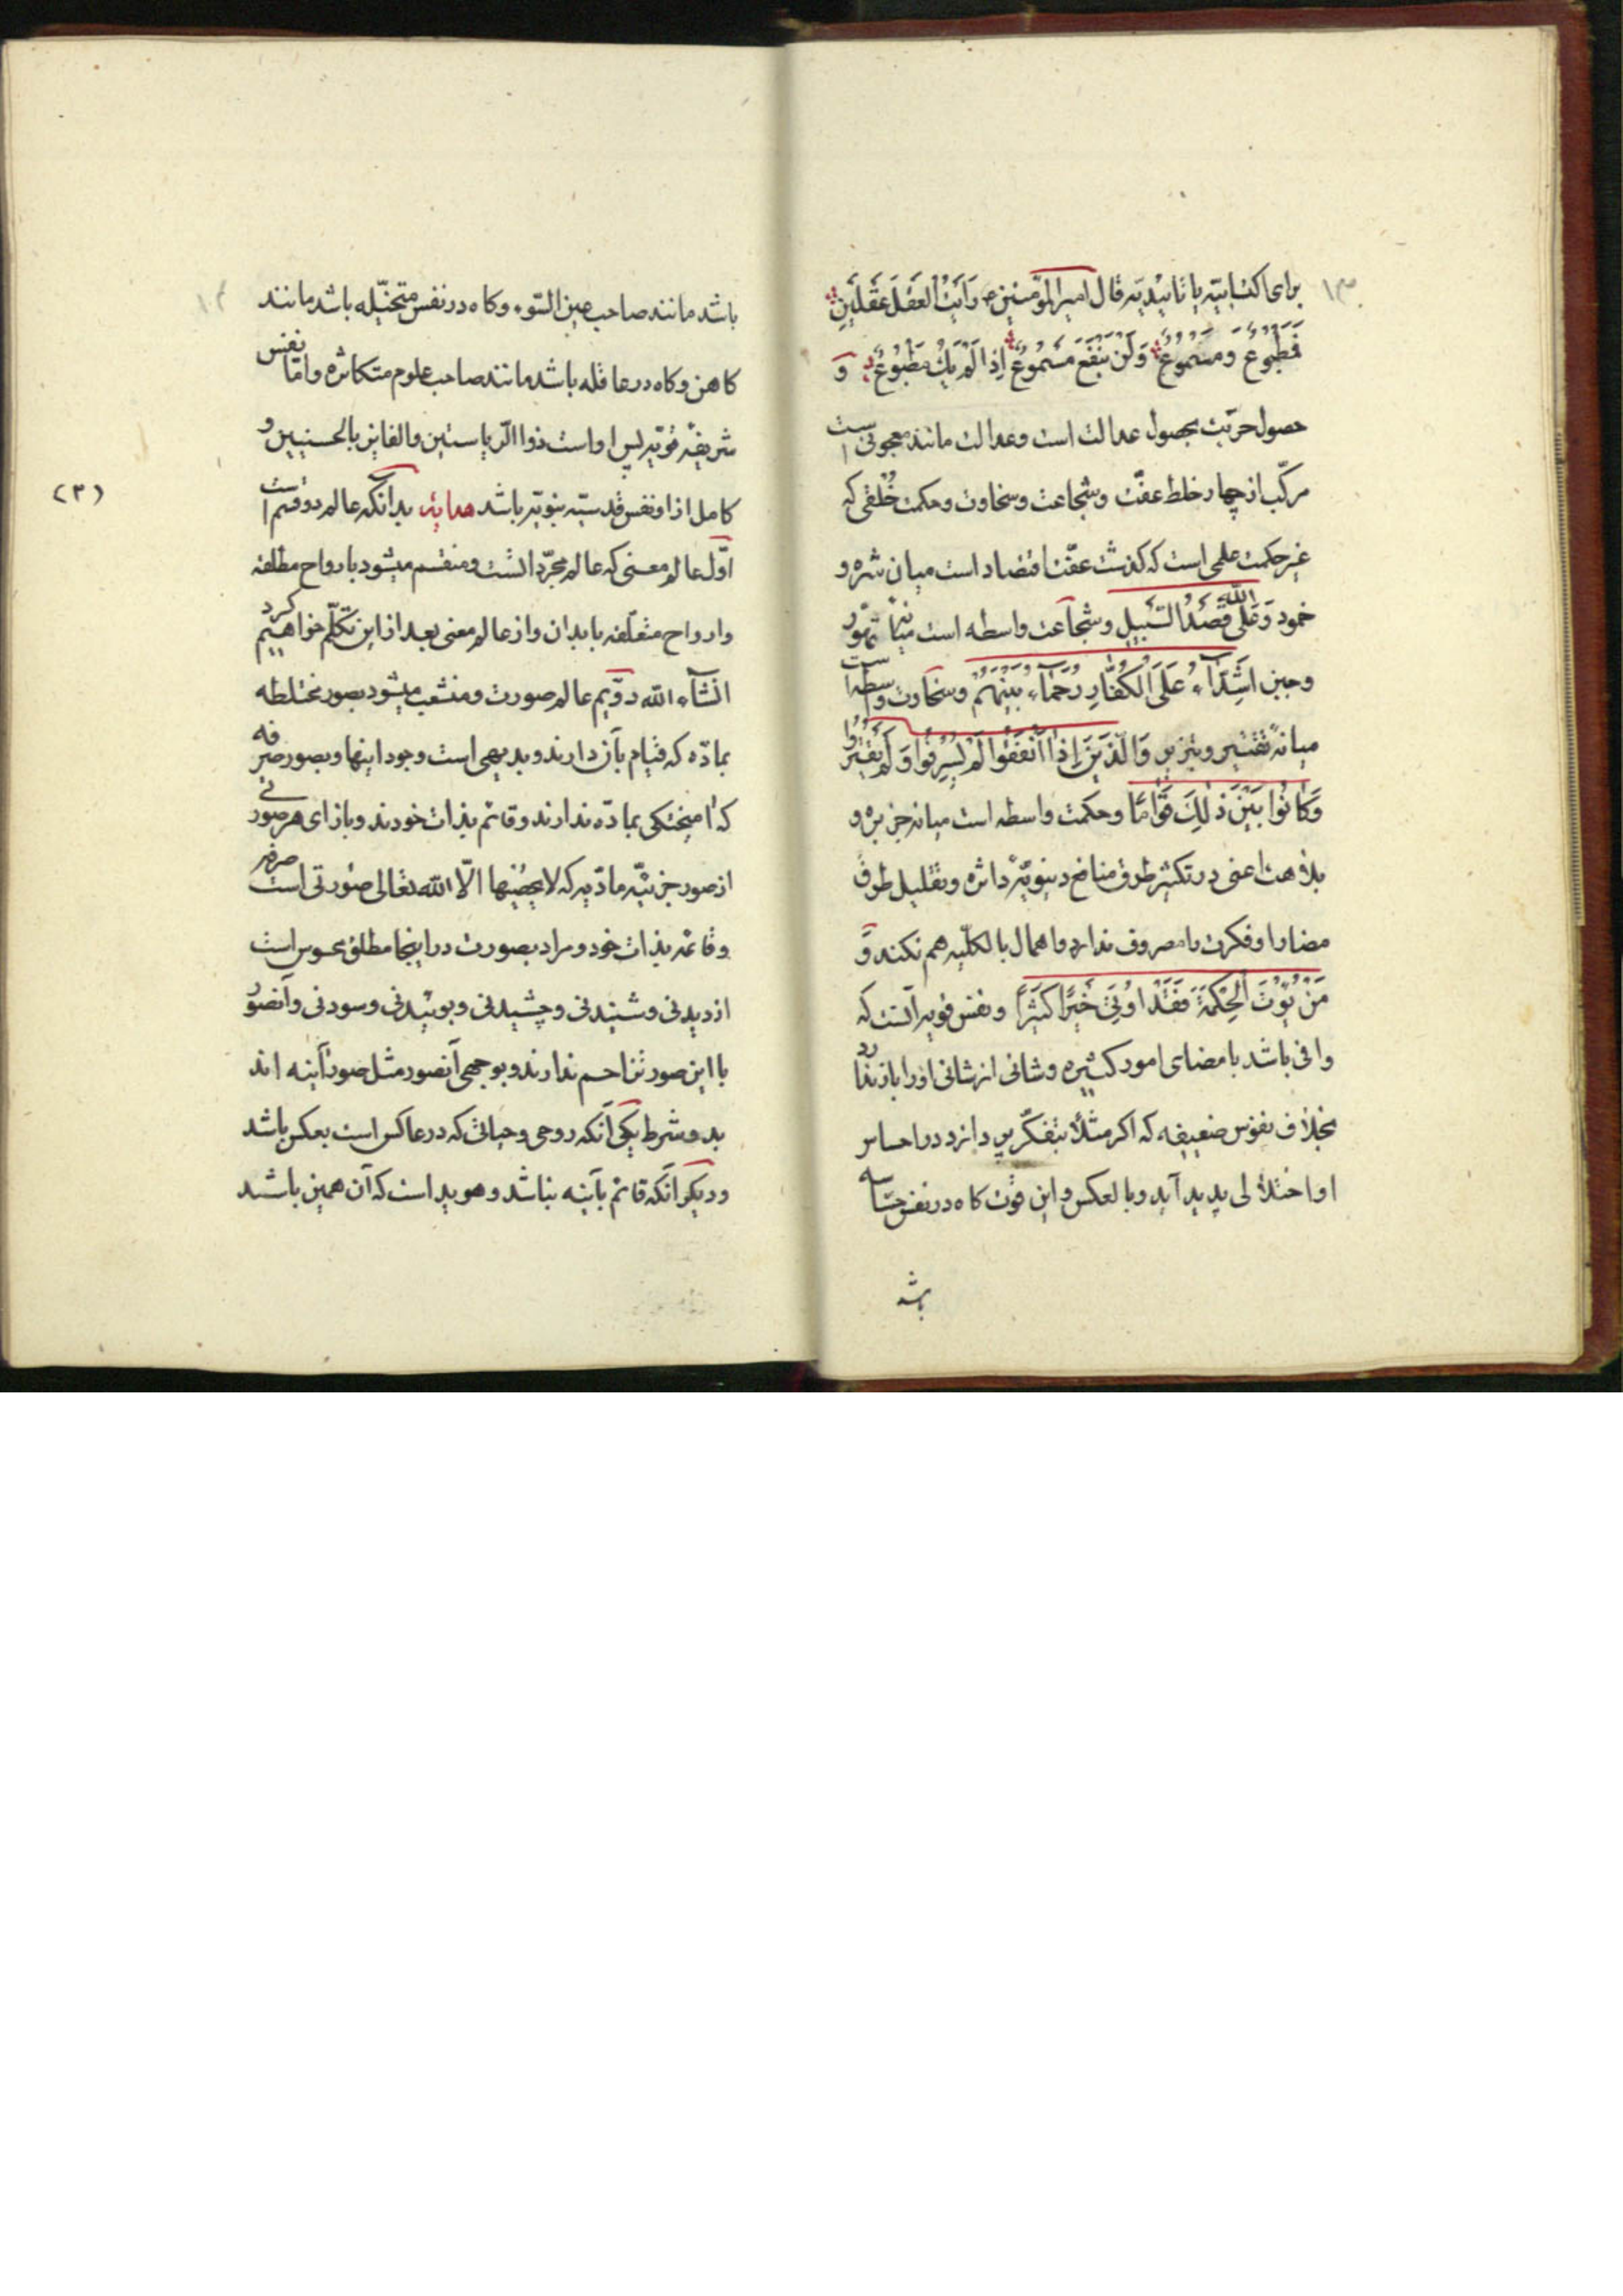 ۱۳
برای اکتسابیّه یا تاییدیّه قال امیرالمؤمنین ص رَاَیْتُ الْعَقْلَ عَقْلَیْنِ
فَمَطْبُوعٌ وَمَسْمُوعٌ وَلَنْ یَنْفَعَ مَسْمُوعٌ اِذٰا لَمْ یَکُ مَطْبُوعٌ وَ
حصول حرّیت بحصول عدالت است و عدالت مانند معجونی است
مرکّب از چهار خلط عفّت و شجاعت و سخاوت و حکمت خُلقی که
غیر حکمت علمی است که کذشت عفّت اقتصاد است میان شره و
خمود وَعَلَی اللّٰه قَصْدُ السَّبیلِ و شجاعت واسطه است میانهٔ تهوّر
و جبن اَشِدّٰآءُ عَلَی الْکُفّٰارِ رُحَمٰآءُ بَیْنَهُمْ و سخاوت واسطه است
میانهٔ تقتیر و تبزیر وَالَّذینَ اِذٰا اَنْفَقُوا لَمْ یُسْرِفُوا وَلَمْ یَقْتُرُوا
وَکٰانُوا بَیْنَ ذٰلِکَ قَوٰامًا و حکمت واسطه است میانه جربزه و
بلاهت اعنی در تکثیر طرق منافع دنیویّهٔ داثره و تقلیل طرق
مضار او فکرت را مصروف ندارد و اهمال بالکلّیه هم نکند وَ
مَنْ یُؤْتَ الْحِکْمَةَ فَقَدْ اوُتِیَ خَیْرًا کَثیرًا و نفس قویه آنست که
وافی باشد بامضای امور کثیره و شانی از شانی او را باز ندارد
بخلاف نفوس ضعیفه که اکر مثلاً بتفکّر پردازد در احساس
او اختلالی پدید آید و بالعکس و این قوت کاه در نفس حسّاسه
باشد
باشد مانند صاحب عین السّوء و کاه در نفس متخیّله باشد مانند
کاهن و کاه در عاقله باشد مانند صاحب علوم متکاثره و امّا نفس
شریفهٔ قویّه پس او است ذوا الرّیاستین والفایز بالحسنیین و
کامل از او نفس قدسیّه نبویّه باشد هدایة بدانکه عالم دو قسم است
(۳)
اوّل عالم معنی که عالم مجرّد انست و منقسم میشود بارواح مطلقه
و ارواح متعلّقه بابدان و از عالم معنی بعد از این تکلّم خواهیم کرد
انشآء الله دوّیم عالم صورت و منشعب میشود بصور مختلطه
بمادّه که قیام بآن دارند و بدیهی است وجود اینها و بصور صرفه
که امیختکی بمادّه ندارند و قائم بذات خودند و بازای هر صورتی
از صور جزئیّه مادّیه که لا یحصیها الّا الله تعالی صورتی است صرفه
و قائمه بذات خود و مراد بصورت در اینجا مطلق محسوس است
از دیدنی و شنیدنی و چشیدنی و بوئیدنی و سودنی و آنصور
با این صور تزاحم ندارند و بوجهی آنصور مثل صور آینه اند
بدو شرط یکی آنکه روحی و حیاتی که در عاکس است بعکس باشد
و دیکر آنکه قائم بآینه نباشد و هویدا است که آن همین باشد